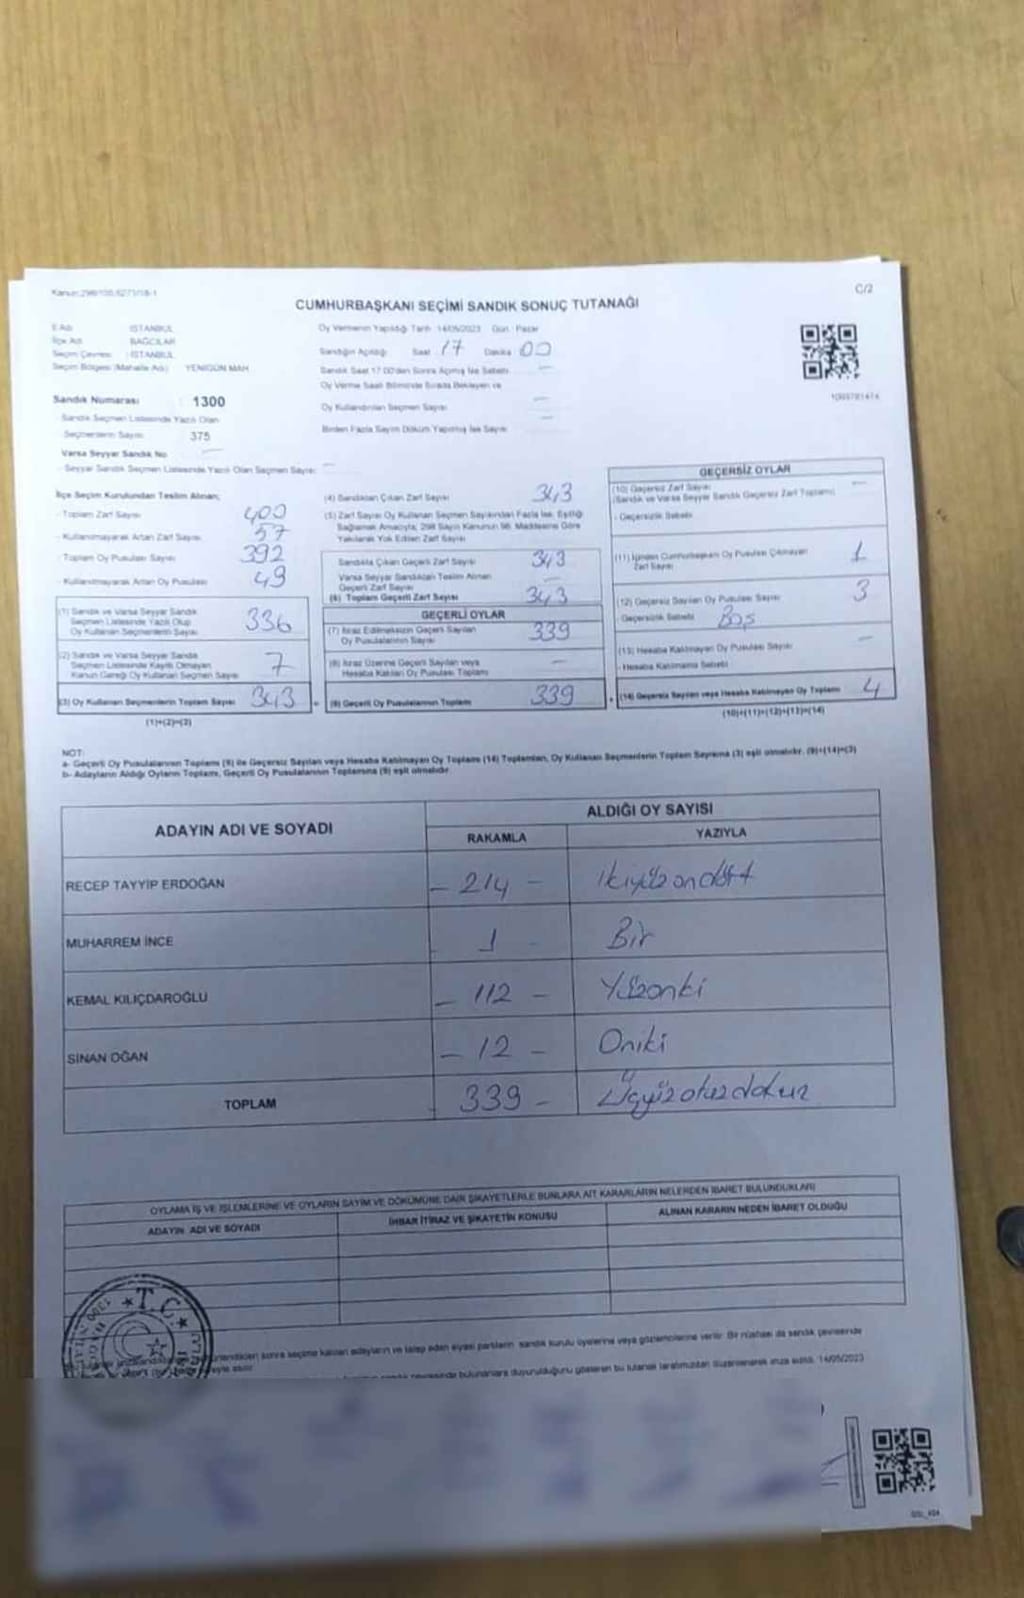 Kanun:298/105,6271/18-1
C/2
CUMHURBAŞKANI SEÇİMİ SANDIK SONUÇ TUTANAĞI
İl Adı : İSTANBUL
İlçe Adı : BAĞCILAR
Seçim Çevresi : İSTANBUL
Seçim Bölgesi (Mahalle Adı) : YENİGÜN MAH.
Sandık Numarası : 1300
Sandık Seçmen Listesinde Yazılı Olan
Seçmenlerin Sayısı 375
Varsa Seyyar Sandık No —
- Seyyar Sandık Seçmen Listesinde Yazılı Olan Seçmen Sayısı: —
Oy Vermenin Yapıldığı Tarih : 14/05/2023 Gün : Pazar
Sandığın Açıldığı Saat 17 Dakika 00
Sandık Saat 17.00'den Sonra Açılmış İse Sebebi —
Oy Verme Saati Bitiminde Sırada Bekleyen ve
Oy Kullandırılan Seçmen Sayısı —
Birden Fazla Sayım Döküm Yapılmış İse Sayısı —
İlçe Seçim Kurulundan Teslim Alınan;
- Toplam Zarf Sayısı 400
- Kullanılmayarak Artan Zarf Sayısı 57
- Toplam Oy Pusulası Sayısı 392
- Kullanılmayarak Artan Oy Pusulası 49
(1) Sandık ve Varsa Seyyar Sandık
Seçmen Listesinde Yazılı Olup
Oy Kullanan Seçmenlerin Sayısı 336
(2) Sandık ve Varsa Seyyar Sandık
Seçmen Listesinde Kayıtlı Olmayan
Kanun Gereği Oy Kullanan Seçmen Sayısı 7
(3) Oy Kullanan Seçmenlerin Toplam Sayısı 343
(1)+(2)=(3)
(4) Sandıktan Çıkan Zarf Sayısı 343
(5) Zarf Sayısı Oy Kullanan Seçmen Sayısından Fazla İse, Eşitliği
Sağlamak Amacıyla, 298 Sayılı Kanunun 98. Maddesine Göre
Yakılarak Yok Edilen Zarf Sayısı
Sandıkta Çıkan Geçerli Zarf Sayısı 343
Varsa Seyyar Sandıktan Teslim Alınan
Geçerli Zarf Sayısı —
(6) Toplam Geçerli Zarf Sayısı 343
GEÇERLİ OYLAR
(7) İtiraz Edilmeksizin Geçerli Sayılan
Oy Pusulalarının Sayısı 339
(8) İtiraz Üzerine Geçerli Sayılan veya
Hesaba Katılan Oy Pusulası Toplamı —
(9) Geçerli Oy Pusulalarının Toplamı 339
GEÇERSİZ OYLAR
(10) Geçersiz Zarf Sayısı
(Sandık ve Varsa Seyyar Sandık Geçersiz Zarf Toplamı) —
- Geçersizlik Sebebi
(11) İçinden Cumhurbaşkanı Oy Pusulası Çıkmayan
Zarf Sayısı 1
(12) Geçersiz Sayılan Oy Pusulası Sayısı 3
Geçersizlik Sebebi Boş
(13) Hesaba Katılmayan Oy Pusulası Sayısı —
- Hesaba Katılmama Sebebi
(14) Geçersiz Sayılan veya Hesaba Katılmayan Oy Toplamı 4
(10)+(11)+(12)+(13)=(14)
NOT:
a- Geçerli Oy Pusulalarının Toplamı (9) ile Geçersiz Sayılan veya Hesaba Katılmayan Oy Toplamı (14) Toplamları, Oy Kullanan Seçmenlerin Toplam Sayısına (3) eşit olmalıdır. (9)+(14)=(3)
b- Adayların Aldığı Oyların Toplamı, Geçerli Oy Pusulalarının Toplamına (9) eşit olmalıdır.
ADAYIN ADI VE SOYADI
ALDIĞI OY SAYISI
RAKAMLA YAZIYLA
RECEP TAYYİP ERDOĞAN - 214 - İkiyüzondört
MUHARREM İNCE - 1 - Bir
KEMAL KILIÇDAROĞLU - 112 - Yüzonki
SİNAN OĞAN - 12 - Oniki
TOPLAM - 339 - Üçyüzotuzdokuz
OYLAMA İŞ VE İŞLEMLERİNE VE OYLARIN SAYIM VE DÖKÜMÜNE DAİR ŞİKAYETLERLE BUNLARA AİT KARARLARIN NELERDEN İBARET BULUNDUKLARI
ADAYIN ADI VE SOYADI
İHBAR İTİRAZ VE ŞİKAYETİN KONUSU
ALINAN KARARIN NEDEN İBARET OLDUĞU
T.C.
sonra seçime katılan adayların ve talep eden siyasi partilerin sandık kurulu üyelerine veya gözlemcilerine verilir. Bir nüshası da sandık çevresinde
bulunanlara duyurulduğunu gösteren bu tutanak tarafımızdan düzenlenerek imza edildi. 14/05/2023